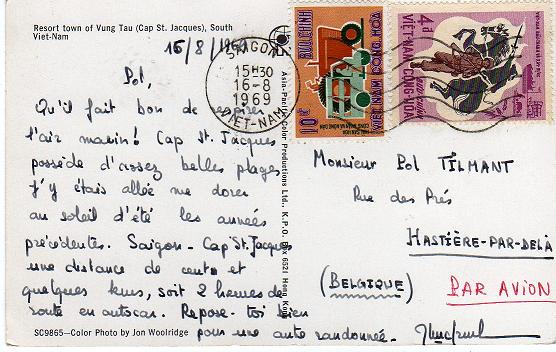 Resort town of Vung Tau (Cap St. Jacques), South
Viet-Nam
15/8/1969
Pol,
Qu'il fait bon de respirer
l'air marin! Cap St. Jacques
possède d'assez belles plages
J'y étais allée me dorer
au soleil d'été les années
précédentes. Saigon - Cap St. Jacques
une distance de cent et
quelques kms, soit 2 heures de
route en autocar. Repose-toi bien
pour une autre randonnée.
SC9865—Color Photo by Jon Woolridge
Asia-Pacific Color Productions Ltd., K.P.O. Box 6521 Hong Kong
SAIGON
15H30
16-8
1969
VIET-NAM
BUU CHINH
VIET NAM CONG HOA
10đ
4đ
VIET-NAM CONG-HOA
Monsieur Pol TILMANT
Rue des Prés
HASTIÈRE-PAR-DELÀ
(BELGIQUE)
PAR AVION